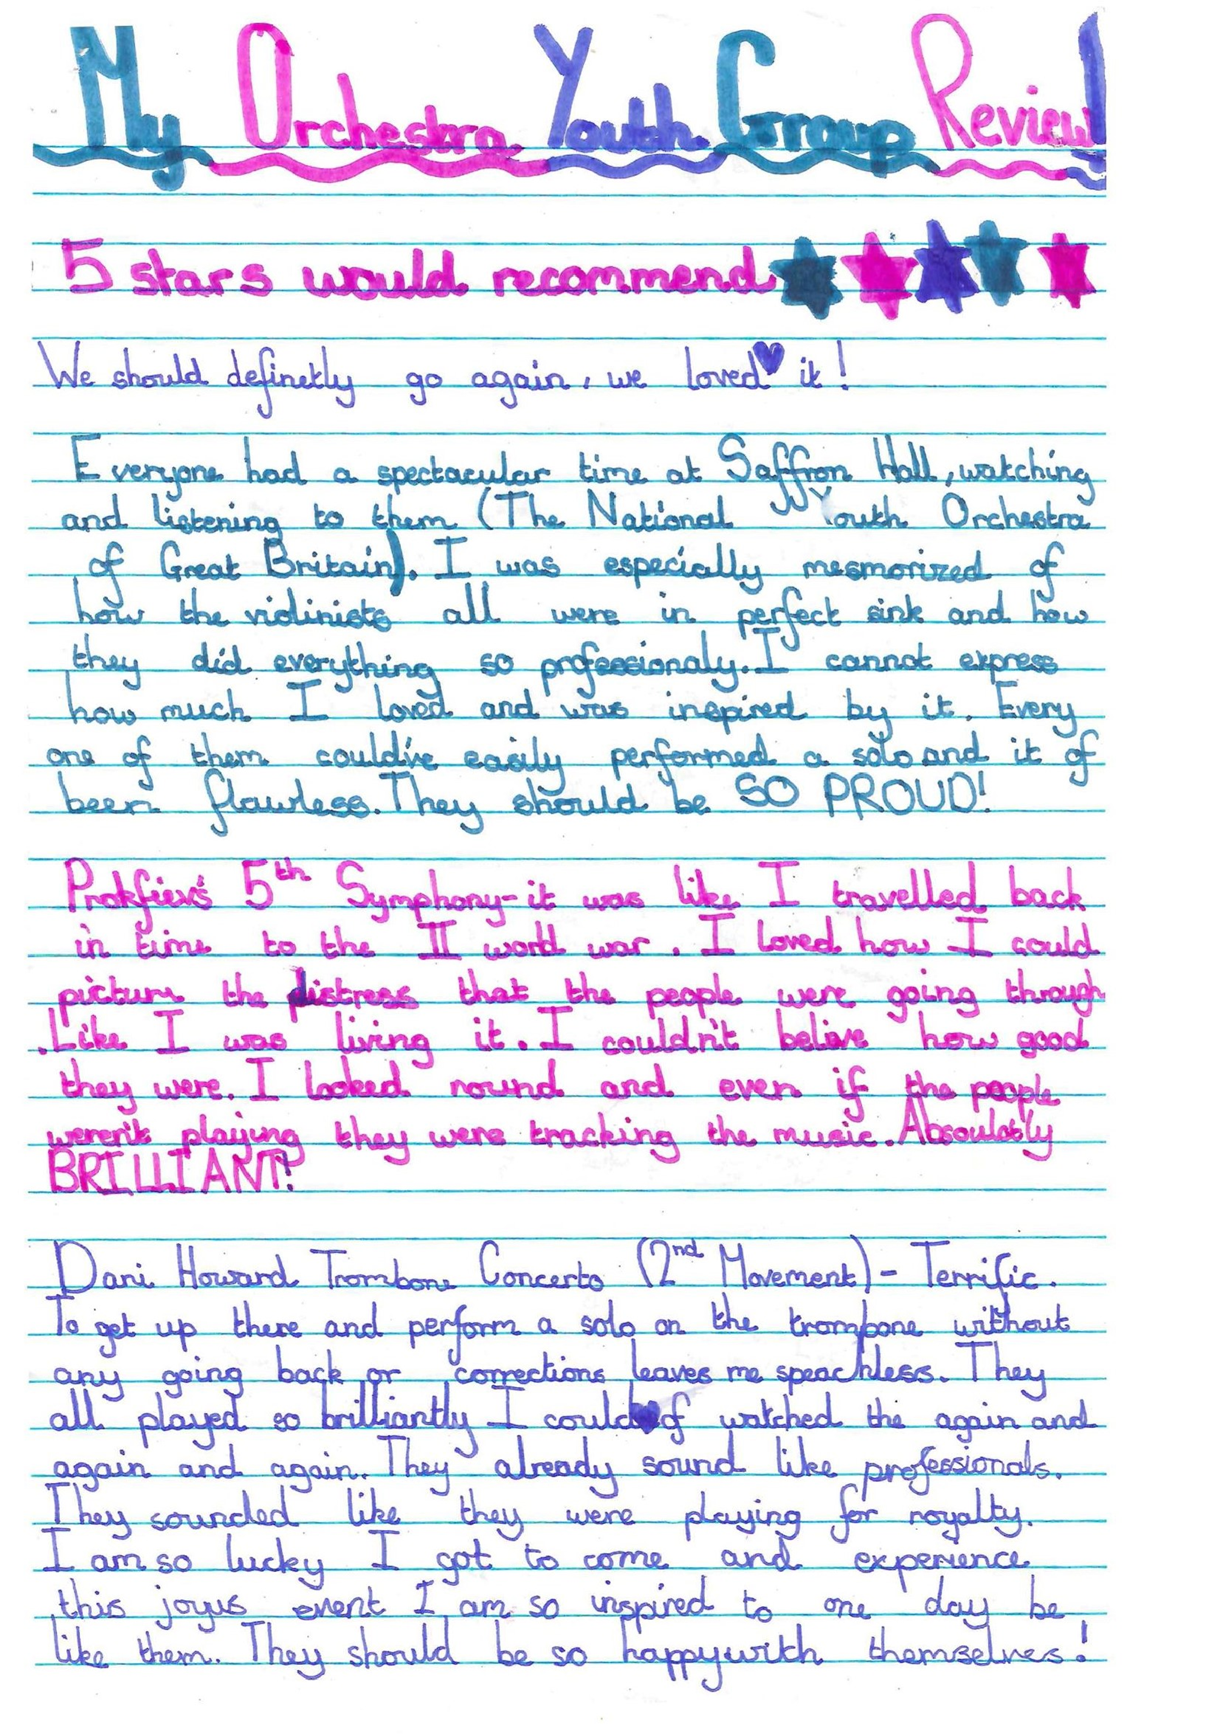 My Orchestra Youth Group Review!
5 stars would recommend
We should definetly go again, we loved it!
Everyone had a spectacular time at Saffron Hall, watching
and listening to them (The National Youth Orchestra
of Great Britain). I was especially mesmorized of
how the violinists all were in perfect sink and how
they did everything so professionaly. I cannot express
how much I loved and was inspired by it. Every
one of them could've easily performed a solo and it of
been flawless. They should be SO PROUD!
Prokfiev's 5th Symphony - it was like I travelled back
in time to the II world war. I loved how I could
picture the distress that the people were going through
. Like I was living it. I couldn't belive how good
they were. I looked round and even if the people
weren't playing they were tracking the music. Absoulatly
BRILLIANT!
Dani Howard Trombone Concerto (2nd Movement) - Terrific.
To get up there and perform a solo on the trombone without
any going back or corrections leaves me speachless. They
all played so brilliantly I could of watched the again and
again and again. They already sound like professionals.
They sounded like they were playing for royalty.
I am so lucky I got to come and experience
this joyus event I am so inspired to one day be
like them. They should be so happy with themselves!